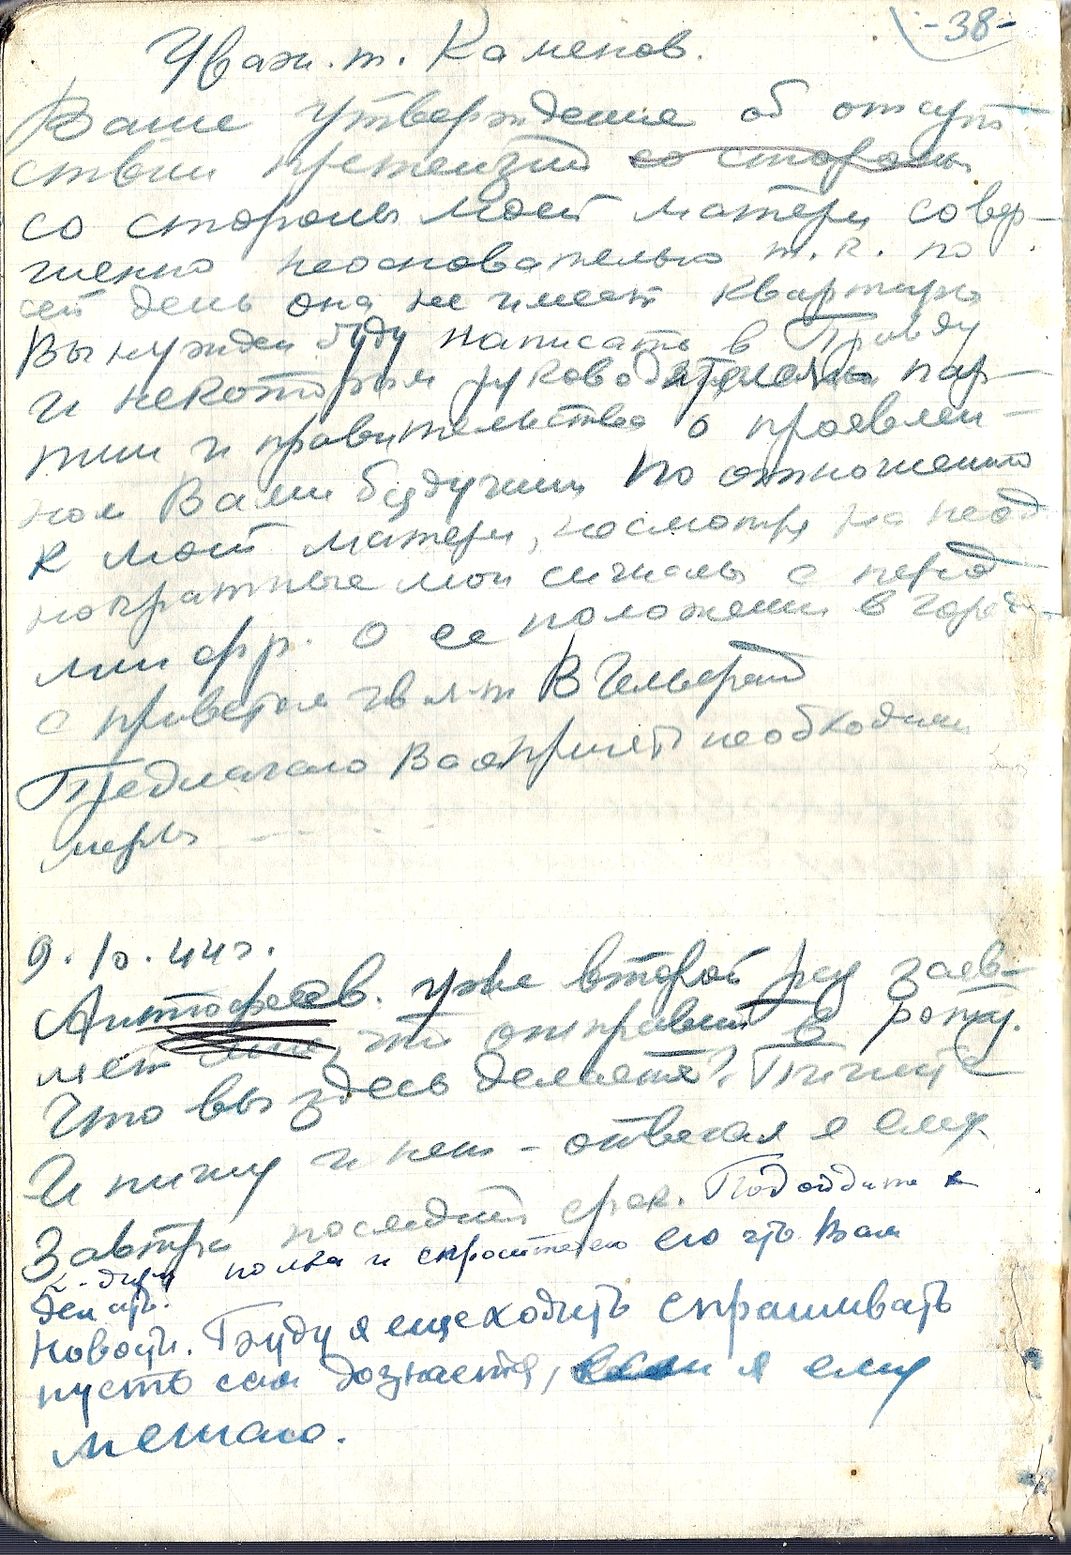 -38-
Уваж. т. Каменов.
Ваше утверждение об отсут-
ствии претензий со стороны
со стороны моей матери совер-
шенно неосновательно т.к. по
сей день она не имеет квартиры
Вынужден буду написать в Правду
и некоторым руководителям пар-
тии и правительства о проявлен-
ном Вами бездушии по отношению
к моей матери, несмотря на неод-
нократные мои сигналы с перед
лин. фр. о ее положении в городе
с приветом гв л-т В Гельфанд
Предлагаю Вам принять необходимые
меры
9.10.44г.
Антофеев. уже второй раз заяв-
ляет мне, что отправит в роту.
Что вы здесь делаете? Пишите
И пишу и нет - отвечал я ему
Завтра последний срок. Подойдите к
к-диру полка и спросите его что Вам
делать.
Новость. Буду я еще ходить спрашивать
пусть сам дознается, если я ему
мешаю.